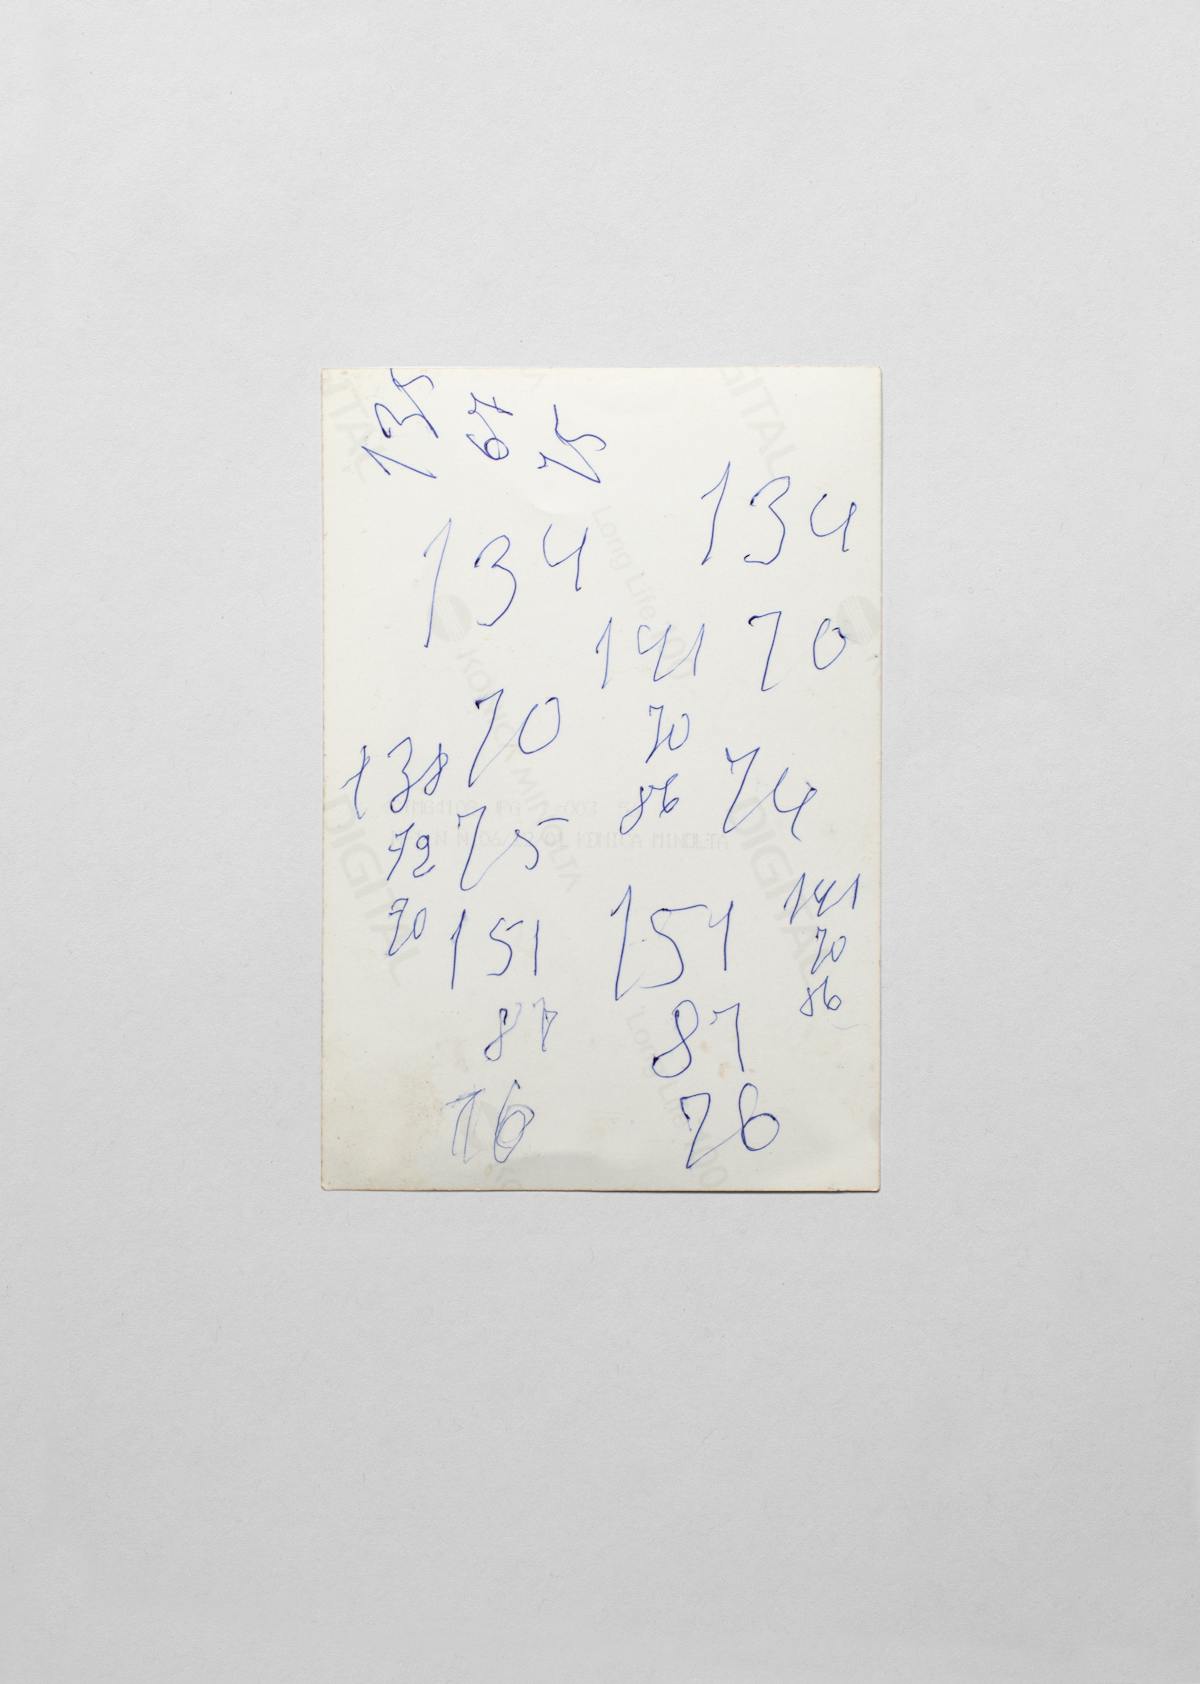 135 67 75
134
134
141 70
70
70
138
86 74
72 75
141
70
151 151
70
86
87 87
76 76
DIGITAL
Long Life 100
KONICA MINOLTA
DIGITAL
KONICA MINOLTA
DIGITAL